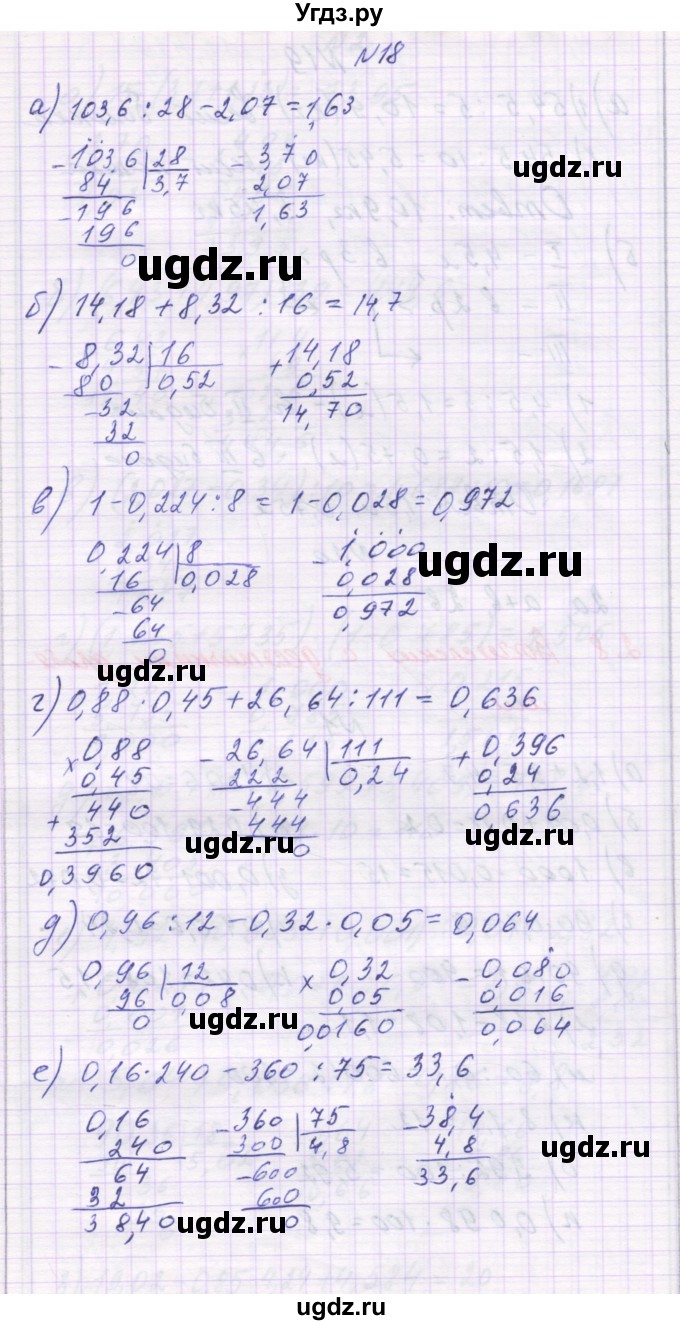 Угдз.ру
№18
а) 103,6 : 28 - 2,07 = 1,63
- 103,6 | 28 - 3,70
84 3,7 2,07
- 196 1,63
196
0
ugdz.ru
ugdz.ru
б) 14,18 + 8,32 : 16 = 14,7
- 8,32 | 16 + 14,18
80 0,52 0,52
- 32 14,70
32
0
ugdz.ru
в) 1 - 0,224 : 8 = 1 - 0,028 = 0,972
0,224 | 8 - 1,000
16 0,028 0,028
- 64 0,972
64
0
ugdz.ru
ugdz.ru
г) 0,88 · 0,45 + 26,64 : 111 = 0,636
× 0,88 - 26,64 | 111 + 0,396
0,45 222 0,24 0,24
+ 440 - 444 0,636
352 444
0,3960 0
ugdz.ru
ugdz.ru
д) 0,96 : 12 - 0,32 · 0,05 = 0,064
0,96 | 12 × 0,32 - 0,080
96 0,08 0,05 0,016
0 0,0160 0,064
ugdz.ru
ugdz.ru
е) 0,16 · 240 - 360 : 75 = 33,6
0,16 - 360 | 75 - 38,4
240 300 4,8 4,8
64 - 600 33,6
32 600
38,40 0
ugdz.ru
ugdz.ru
ugdz.ru